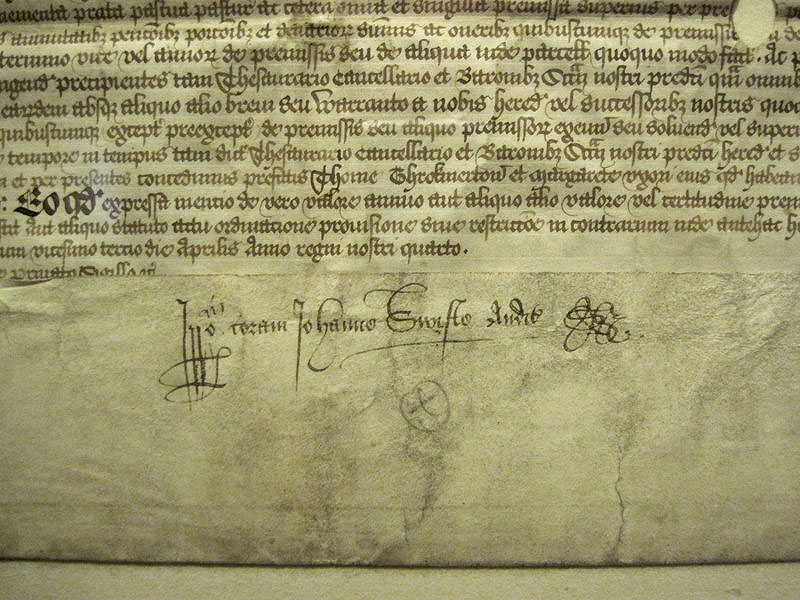 prata pastur pastur ac cetera omia et singula premissa superius per pre
annuitatibz pencoibz porcoibz et denarior sumis ac oneribz quibuscumqz de premissis
termino vite vel annor de premissis seu de aliqua inde parcell quoquo modo fact Ac
precipientes tam Thesaurario Cancellario et Baronibz Sccij nostri predci qm omnibz
eardem absqz aliquo alio brevi seu Warranto a nobis hered vel successoribz nostris quoc
quibuscumqz except preexcept de premissis seu aliquo premissor exeund seu solvend vel super
tempore in tempus tam dict Thesaurario Cancellario et Baronibz Sccij nostri predci hered et s
et per presentes concedimus prefatis Thome Throkmerton et Margarete uxori eius qd habeant
Eo qd expressa mencio de vero valore annuo aut aliquo alio valore vel certitudine prem
aut aliquo statuto actu ordinacione provisione sive restriccoe in contrarium inde antehac
vicesimo tercio die Aprilis Anno regni nostri quarto.
privato Sigillo
coram Johanne Swyfte Audit